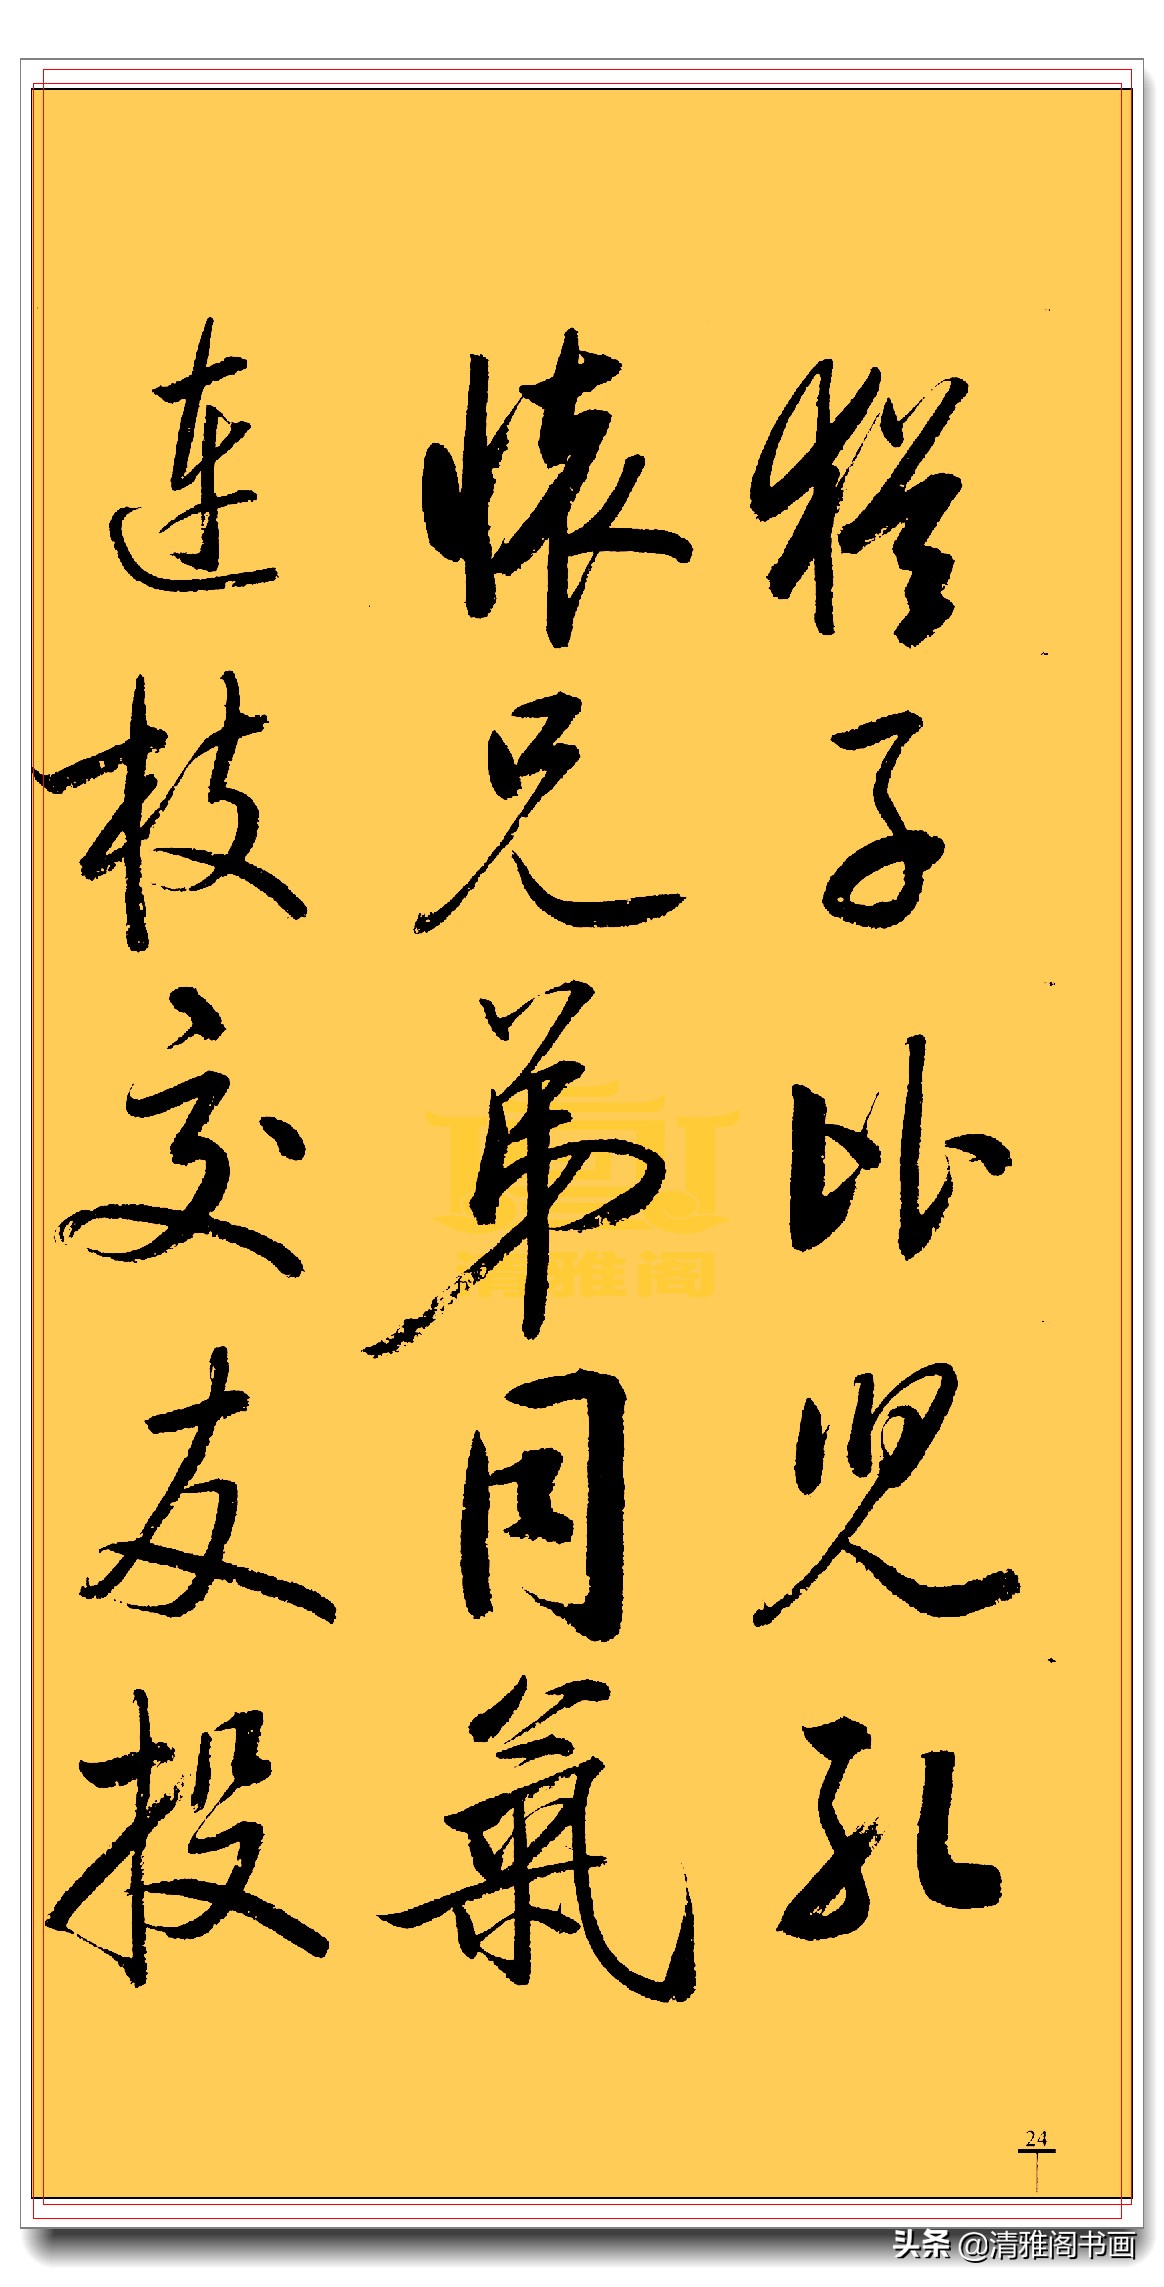 猶子比兒孔
懷兄弟同氣
連枝交友投
清雅阁
24
头条 @清雅阁书画